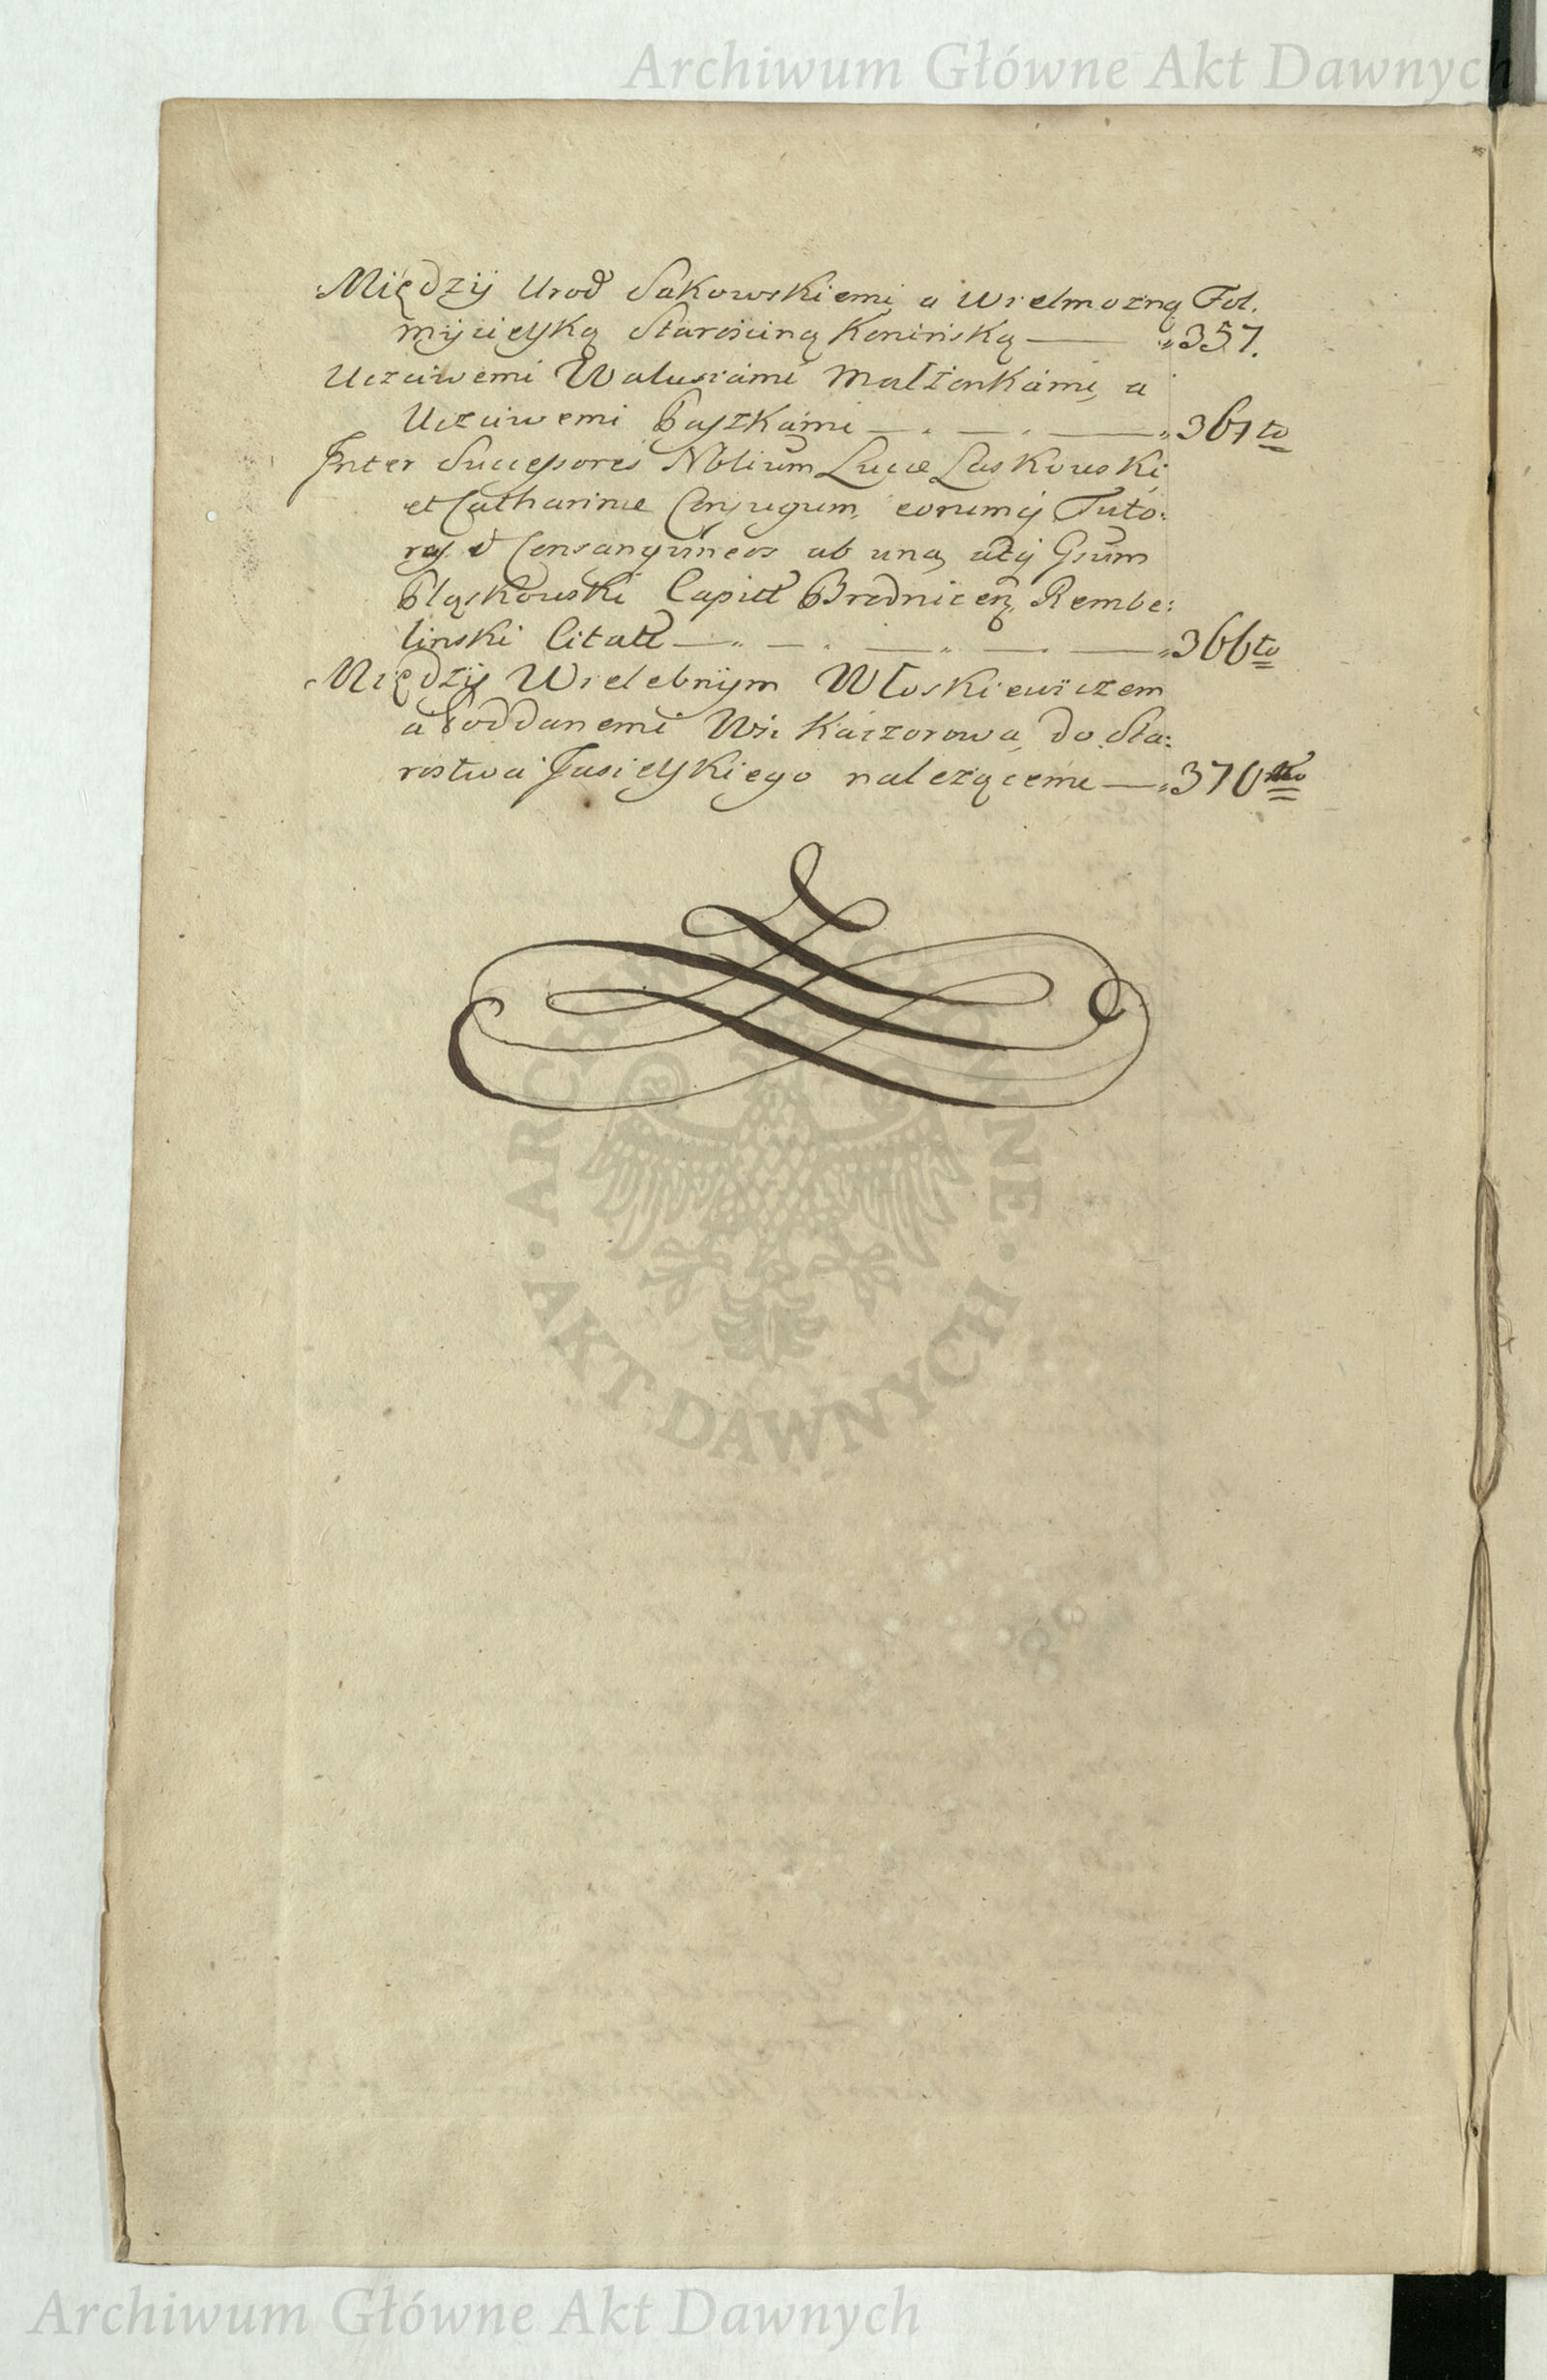 Archiwum Główne Akt Dawnych
Między Urod Sakowskiemi a Wielmożną Fol.
Mycielską Starościną Konińską — „357.
Uczciwemi Walusiami Małżonkámi, a
Uczciwemi Paszkámi — . — . — „361to
Inter Successores Nblium Lucæ Laskowski
et Catharinæ Conjugum, eorumq Tuto:
ras et Consanguineos ab una, atq Gsum
Pląskowski Capitt Brednicen, Rembe:
linski Citatt — „ — . — „ — . — „366to
Między Wielebnym Włoskiewiczem
a Poddanemi Wsi Kaczorowa, do Sta:
rostwa Jasielskiego należącemi — „370
ARCHIWUM GŁÓWNE
· AKT DAWNYCH ·
Archiwum Główne Akt Dawnych